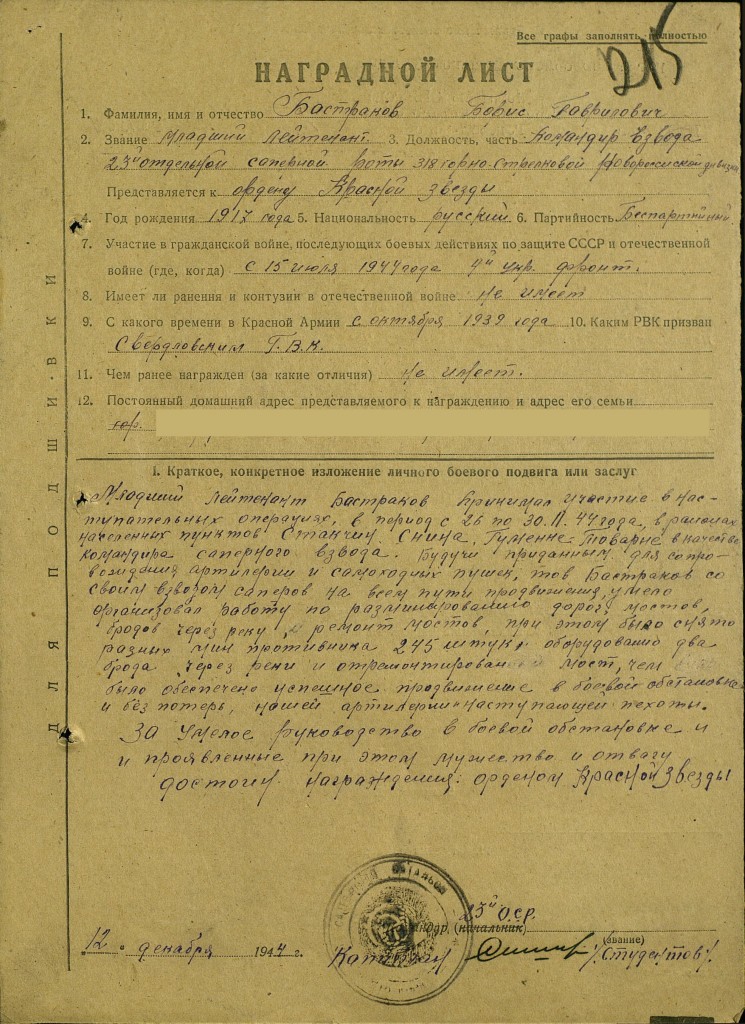 Все графы заполнять полностью
215
НАГРАДНОЙ ЛИСТ
1. Фамилия, имя и отчество Бастраков Борис Гаврилович
2. Звание Младший Лейтенант 3. Должность, часть Командир Взвода
23й отдельной саперной роты 318 горно-стрелковой Новоросийской дивизии
Представляется к ордену Красной звезды
4. Год рождения 1917 года 5. Национальность русский 6. Партийность Беспартийный
7. Участие в гражданской войне, последующих боевых действиях по защите СССР и отечественной
войне (где, когда) с 15 июля 1944 года 4й укр. фронт.
8. Имеет ли ранения и контузии в отечественной войне не имеет
9. С какого времени в Красной Армии с октября 1939 года 10. Каким РВК призван
Свердловским Г.В.К.
11. Чем ранее награжден (за какие отличия) не имеет.
12. Постоянный домашний адрес представляемого к награждению и адрес его семьи
гор.
I. Краткое, конкретное изложение личного боевого подвига или заслуг
Младший Лейтенант Бастраков принимал участие в нас-
тупательных операциях, в период с 26 по 30.11.44 года, в районах
населенных пунктов Станчин, Снина, Гуменне Товарне в качестве
командира саперного взвода. Будучи приданным для сопро-
вождения артилерии и самоходных пушек, тов Бастраков со
своим взводом саперов на всем пути продвижения, умело
организовал работу по разминированию дорог, мостов,
бродов через реку и ремонт мостов, при этом было снято
разных мин противника 245 штук, оборудовано два
брода через реки и отремонтирован мост, чем
было обеспечено успешное продвижение в боевой обстановке
и без потерь, нашей артилерии и наступающей пехоты.
За умелое руководство в боевой обстановке и
и проявленные при этом мужество и отвагу
достоин награждения: орденом Красной Звезды
23й О.С.Р.
Командир (начальник)
12 " декабря 1944 г. Капитан /Студентов/
(звание)
ДЛЯ ПОДШИВКИ